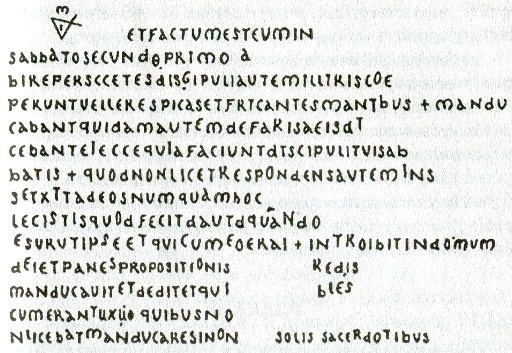 ETFACTUMESTEUMIN
SABBATOSECUNdePRIMO A
BIREPERSCCETESdISGIPULIAUTEMILLTRISCOE
PERUNTUELLERESPICASETFRTCANTESMANTBUS + MANDU
CABANTQUIDAMAUTEMdEFARISAEISdT
CEBANTEIECCEQUIAFACIUNTdTSCIPULITUISAB
BATIS + QUOdNONLICETRESPONdENSAUTEMINS
SETXTTAdEOSNUMQUAMHOC
LECISTISQUOdFECITdAUTdQUANdO
ESURUTIPSEETQUICUMEOERAI + INTROIBITINdOMUM
dEIETPANESPROPOSITIONIS REdIS
MANdUCAUITETdEdITETQUI bLES
CUMERANTUXIIO QUIBUSNO
NLICEBATMANdUCARESINON SOLIS SACERdOTIBUS